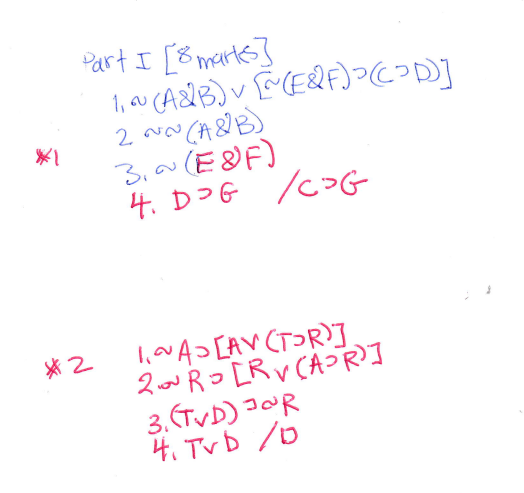 Part I [8 marks]
1. ~(A&B) v [~(E&F)⊃(C⊃D)]
2 ~~(A&B)
#1
3. ~(E&F)
4. D⊃G /C⊃G
#2
1. ~A⊃[Av(T⊃R)]
2. ~R⊃[Rv(A⊃R)]
3. (TvD)⊃~R
4. TvD /D